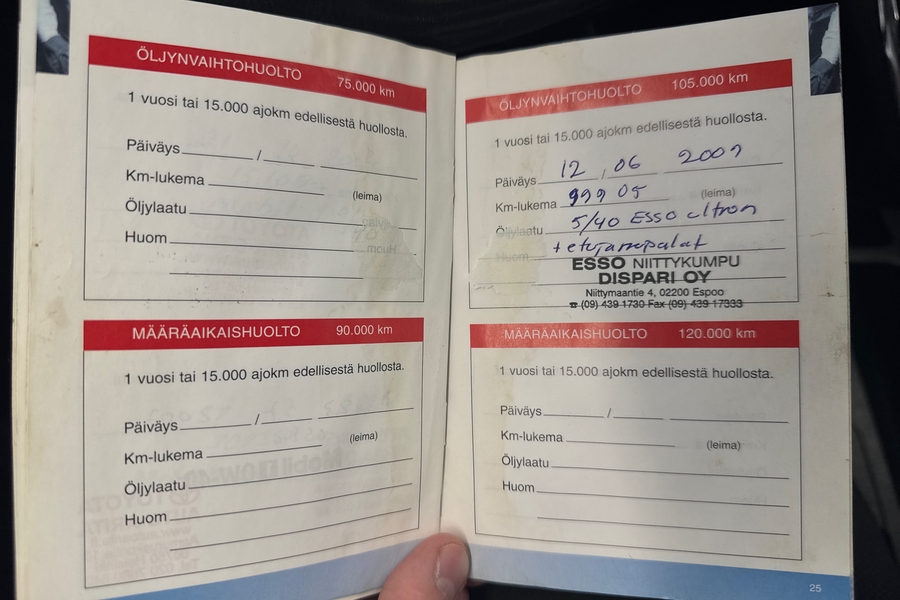 ÖLJYNVAIHTOHUOLTO 75.000 km
1 vuosi tai 15.000 ajokm edellisestä huollosta.
Päiväys / 
Km-lukema
(leima)
Öljylaatu
Huom
MÄÄRÄAIKAISHUOLTO 90.000 km
1 vuosi tai 15.000 ajokm edellisestä huollosta.
Päiväys /
Km-lukema
(leima)
Öljylaatu
Huom
ÖLJYNVAIHTOHUOLTO 105.000 km
1 vuosi tai 15.000 ajokm edellisestä huollosta.
Päiväys 12 / 06 2009
Km-lukema 999 05 (leima)
Öljylaatu 5/40 Esso ultron
Huom + etujarrupalat
ESSO NIITTYKUMPU
DISPARI OY
Niittymaantie 4, 02200 Espoo
☎ (09) 439 1730 Fax (09) 439 17333
MÄÄRÄAIKAISHUOLTO 120.000 km
1 vuosi tai 15.000 ajokm edellisestä huollosta.
Päiväys /
Km-lukema
(leima)
Öljylaatu
Huom
25